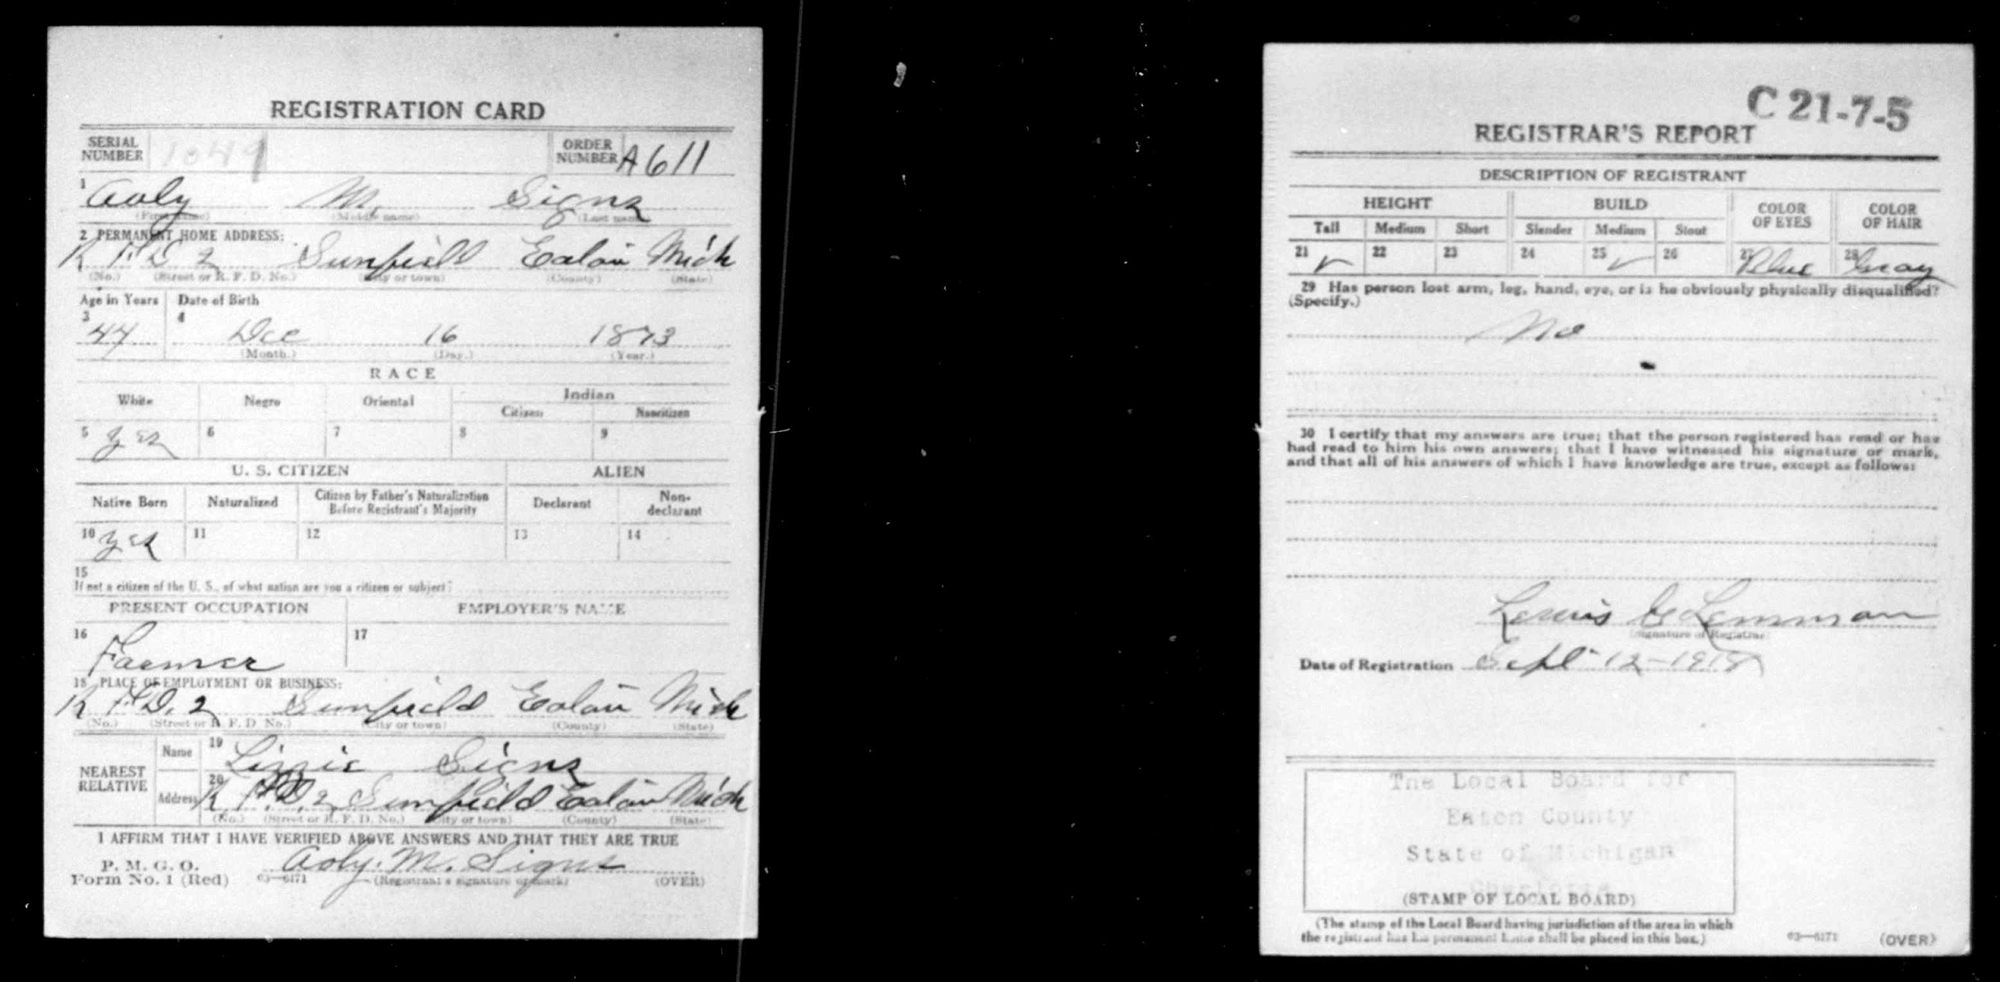 REGISTRATION CARD
SERIAL NUMBER 1049 ORDER NUMBER A611
1 Aoly M. Signs
(First name) (Middle name) (Last name)
2 PERMANENT HOME ADDRESS:
R F D 2 Sunfield Eaton Mich
(No.) (Street or R. F. D. No.) (City or town) (County) (State)
Age in Years Date of Birth
3 44 4 Dec 16 1873
(Month.) (Day.) (Year.)
RACE
White Negro Oriental Indian
Citizen Noncitizen
5 yes 6 7 8 9
U. S. CITIZEN ALIEN
Native Born Naturalized Citizen by Father's Naturalization Before Registrant's Majority Declarant Non-declarant
10 yes 11 12 13 14
15
If not a citizen of the U. S., of what nation are you a citizen or subject?
PRESENT OCCUPATION EMPLOYER'S NAME
16 Farmer 17
18 PLACE OF EMPLOYMENT OR BUSINESS:
R F D. 2 Sunfield Eaton Mich
(No.) (Street or R. F. D. No.) (City or town) (County) (State)
NEAREST RELATIVE
Name 19 Lizzie Signs
Address 20 R F D. 2 Sunfield Eaton Mich
(No.) (Street or R. F. D. No.) (City or town) (County) (State)
I AFFIRM THAT I HAVE VERIFIED ABOVE ANSWERS AND THAT THEY ARE TRUE
P. M. G. O.
Form No. 1 (Red) 03—6171 Aoly. M. Signs
(Registrant's signature or mark) (OVER)
C 21-7-5
REGISTRAR'S REPORT
DESCRIPTION OF REGISTRANT
HEIGHT BUILD COLOR OF EYES COLOR OF HAIR
Tall Medium Short Slender Medium Stout
21 ✓ 22 23 24 25 ✓ 26 27 Blue 28 Gray
29 Has person lost arm, leg, hand, eye, or is he obviously physically disqualified?
(Specify.)
No
30 I certify that my answers are true; that the person registered has read or has
had read to him his own answers; that I have witnessed his signature or mark,
and that all of his answers of which I have knowledge are true, except as follows:
Lewis G Lemmon
(Signature of Registrar)
Date of Registration Sept 12-1918
The Local Board for
Eaton County
State of Michigan
Charlotte
(STAMP OF LOCAL BOARD)
(The stamp of the Local Board having jurisdiction of the area in which
the registrant has his permanent home shall be placed in this box.)
03—6171 (OVER)